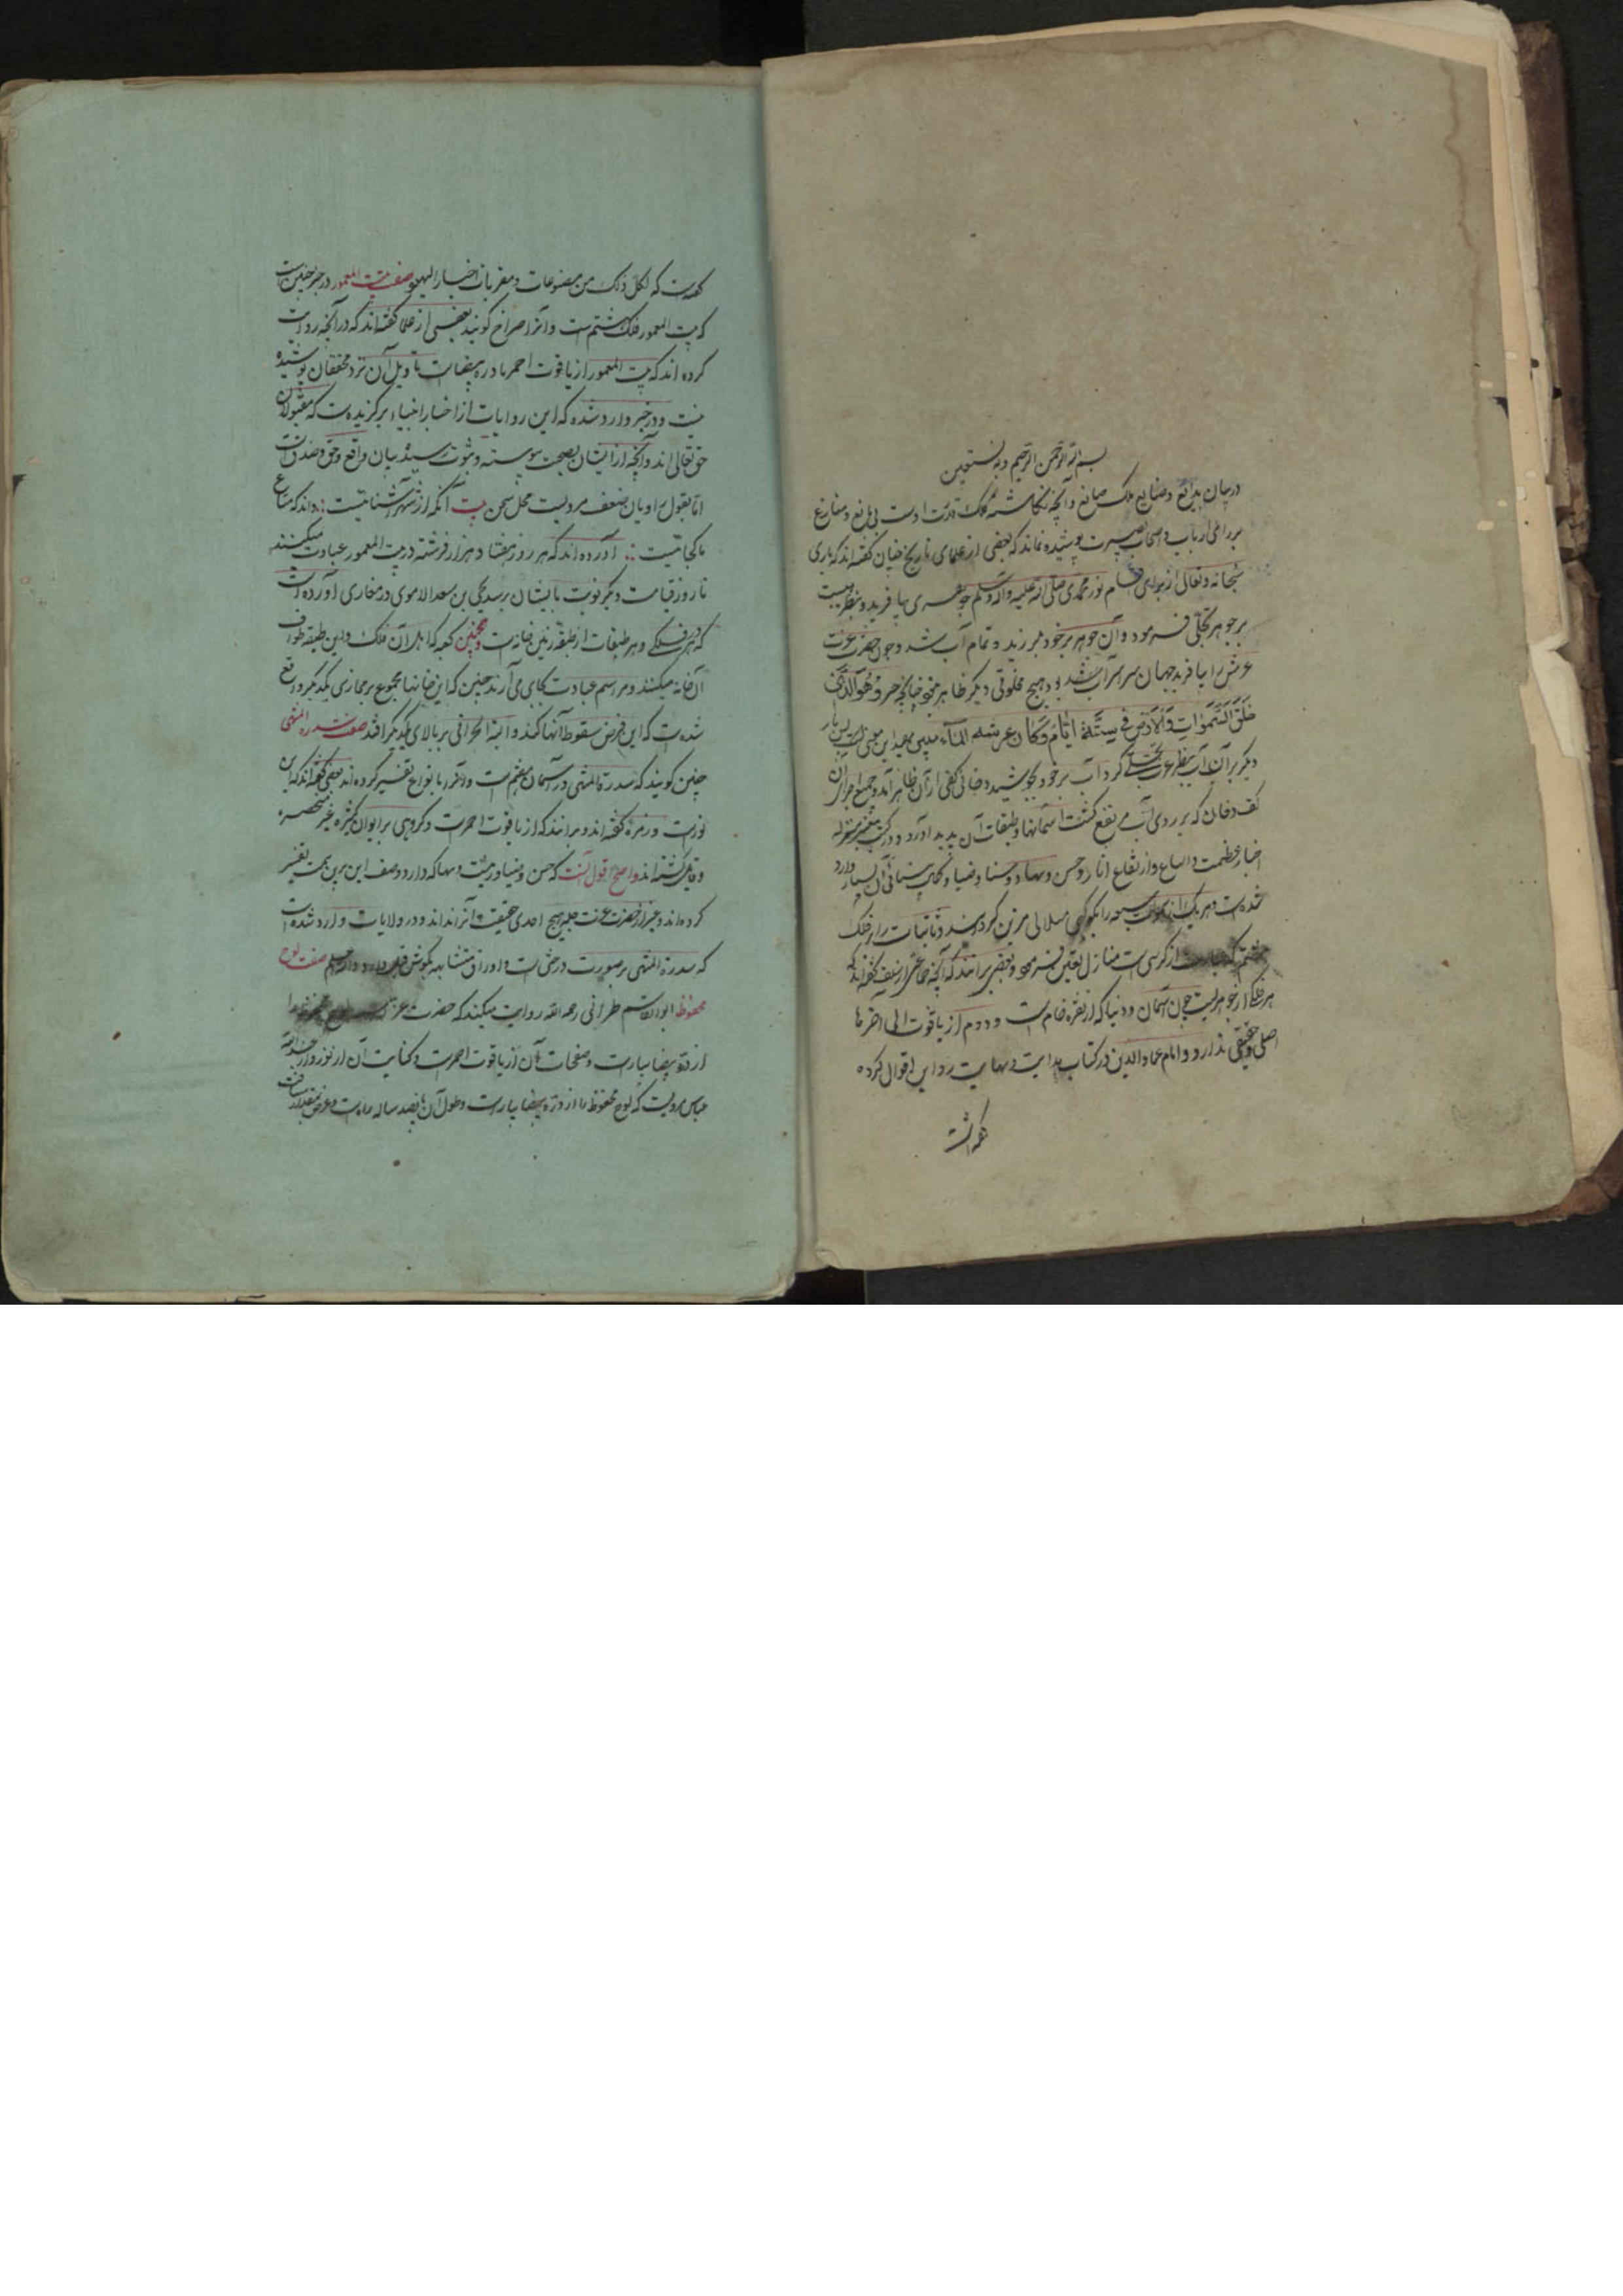 بسم الله الرحمن الرحیم وبه نستعین
در بیان بدایع و صنایع ملک صانع و آنچه نکاشته کلک قدرت اوست بی مانع و منازع
بر رای ارباب و اصحاب بصیرت پوشیده نماند که بعضی از علمای تاریخ چنان کفته اند که باری
سبحانه و تعالی از برای نور محمدی صلی الله علیه واله وسلم جوهری بیافرید و بنظر هیبت
بر جوهر تجلی فرمود و آن جوهر بر خود بلرزید و تمام آب شد و چون حضرت عزت
عرش را بیافرید جهان سراسر آب بود و هیچ مخلوقی دیکر ظاهر نه چنانچه وَهُوَ الَّذِی
خَلَقَ السَّمٰوَاتِ وَالْاَرْضَ فِی سِتَّةِ اَیَّامٍ وَکَانَ عَرْشُهُ عَلَی الْمَآءِ این معنی است پس بار
دیکر بر آن آب بنظر عزت تجلی کرد آب بر خود بجوشید و دخانی کفی از آن ظاهر آمد و جمیع اجزای آن
کف و دخان که بر روی آب مرتفع کشت آسمانها و طبقات آن پدید آورد و در کتب
اخبار عظمت و اتساع و ارتفاع انار و حسن و بهاء و سنا و ضیاء آن بسیار وارد
شده است و هر یک از سموات سبعه را بکوکبی مزین کردانید و ثابتات را از فلک
هشتم که عبارت از کرسی است منازل تعین فرمود و بعضی برانند که آنچه کفته اند که
هر فلکی از جوهریست چون آسمان دنیا که از نقره خام است و دوم از یاقوت الی آخرها
اصلی و حقیقی ندارد و امام عماد الدین در کتاب بدایت و نهایت رد این اقوال کرده
کفته است
کفته است که لکل ذلک من مصنوعات و مفتریات اخبار الیهود صفت بیت المعمور در خبر چنین است
که بیت المعمور فلک هشتم است و آنرا صراح کویند بعضی از علما کفته اند که در آنچه روایت
کرده اند که بیت المعمور از یاقوت احمر یا دره بیضا است تاویل آن نزد محققان پوشیده
نیست و در خبر وارد شده که این روایات از اخبار انبیاء برکزیده است که مقبولان
حق تعالی اند و آنچه از ایشان بصحت پیوسته و بثبوت رسیده بیان واقع و حق و صدق است
اما بقول راویان ضعف مرویست محل سخن بیت آنکه از شهر آشنائیست : داند که متاع
ما کجائیست : آورده اند که هر روز هفتاد هزار فرشته در بیت المعمور عبادت میکنند
تا روز قیامت دیکر نوبت بایشان نرسد یحیی بن سعد الاموی در مغازی آورده است
که در هر فلکی و هر طبقات از طبقه زمین خانه است و همچنین کعبه که اهل آن فلک و این طبقه طواف
آن خانه میکنند و مراسم عبادت بجای می آرند چنین که این خانها مجموع بر محاذی یکدیکر واقع
شده است که این فرض سقوط آنها کند و البته بالای یکدیکر افتد صفت سدرة المنتهی
چنین کویند که سدرة المنتهی در آسمان هفتم است و آنرا بانواع تفسیر کرده اند بعضی کفته اند که این
نورست و زمره کفته اند و برانند که از یاقوت احمرست و کروهی بر الوان کثیره غیر منحصره
قایل کشته اند و اصح اقوال آنست که حسن و ضیا و زینت و بها که دارد وصف این برین سمت تفسیر
کرده اند و بجز از حضرت عزت هیچ احدی حقیقت آنرا نداند و در ولایات وارد شده است
که سدرة المنتهی بر صورت درختی است و اوراق متشابه بکوش فیل دارد صفت لوح
محفوظ ابوالقاسم طبرانی رحمه الله روایت میکند که حضرت عزت لوح محفوظ را
از دره بیضا بیاراست و صفحات آن از یاقوت احمرست و کتابت آن از نور و از
عباس مرویست که لوح محفوظ را از دره بیضا بیاراست و طول آن پانصد ساله راه است و عرض